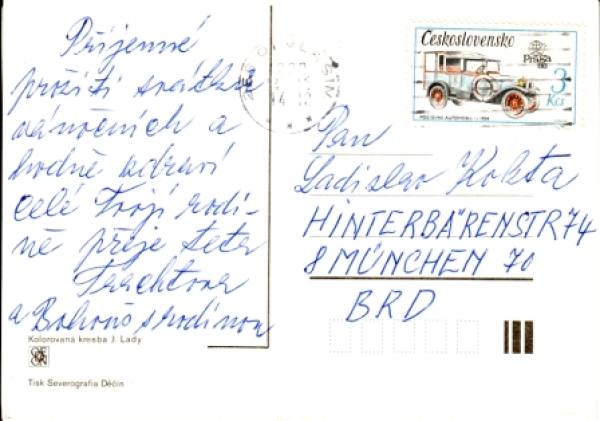 Příjemné
prožití svátků
vánočních a
hodně zdraví
celé Tvojí rodi-
ně přeje teta
a Bohouš s rodinou
Kolorovaná kresba J. Lady
Tisk Severografia Děčín
Československo
Praha
3 Kčs
POŠTOVNÍ AUTOMOBIL
Pan
Ladislav
HINTERBÄRENSTR 74
8 MÜNCHEN 70
BRD